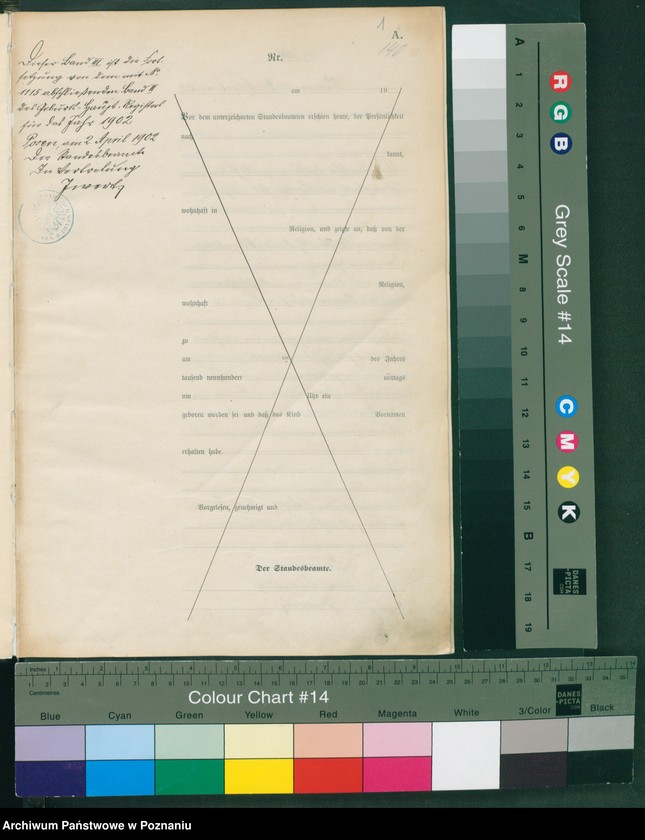 1
A.
140
Nr.
Dieser Band III. ist die Fort-
setzung von dem mit Nr.
1115 abschließenden Band II
des Geburts-Haupt-Registers
für das Jahr 1902
Posen, am 2 April 1902
Der Standesbeamte
In Vertretung
am 19
Vor dem unterzeichneten Standesbeamten erschien heute, der Persönlichkeit
nach
kannt,
wohnhaft in
Religion, und zeigte an, daß von der
Religion,
wohnhaft
zu
am ten des Jahres
tausend neunhundert mittags
um Uhr ein
geboren worden sei und daß das Kind Vornamen
erhalten habe.
Vorgelesen, genehmigt und
Der Standesbeamte.
A 1 2 3 4 5 6 M 8 9 10 11 12 13 14 15 B 17 18 19
R G B
Grey Scale #14
C M Y K
DANES
-PICTA
.COM
Inches 1 2 3 4 5 6 7 8 9 10 11 12 13 14
1 2 3 4 5 6 7 8 9 10 11 12 13 14 15 16 17 18 19 20 21 22 23 24 25 26 27 28 29 30 31 32 33 34 35
Centimetres
Colour Chart #14
DANES
-PICTA
.COM
Blue Cyan Green Yellow Red Magenta White 3/Color Black
Archiwum Państwowe w Poznaniu